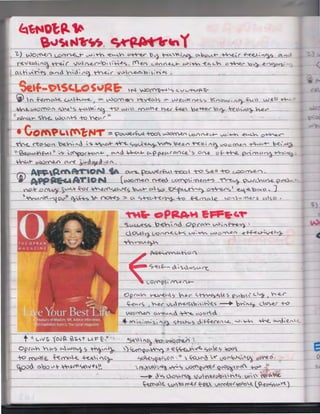 GENDER &
BUSINESS STRATEGY
2) women connect with each other by talking about their feelings and
revealing their vulnerabilities. Men connect with each other by engaging
activities and hiding their vulnerabilities.
SELF-DISCLOSURE IN WOMEN'S CULTURE
In female culture, women reveals weakness knowing full well that
the woman she's talking to will make her feel better by telling her
what she wants to hear
COMPLIMENT = powerful tool women connect with each other
the reason behind is that the society has been telling women that being
"Beautiful" is important, and that appearance is one of the primary things
that women are judged on.
AFFIRMATION &
APPRECIATION are powerful tool to sell to women.
[women need compliments. They purchase products
not only just for themselves but also
"thank-you" gifts & notes → a strategy to female customers also.
THE OPRAH EFFECT
Success behind Oprah Winfrey:
closely connects with women effectively
through
Affirmation
Self-disclosure
Compliment
Oprah reveals her struggles publicly, her
fears, her vulnerabilities → brings closer to
women around the world
minimising status difference with the audience
O
THE OPRAH
MAGAZINE
Live Your Best Life
"LIVE YOUR BEST LIFE":
Oprah has always trying
to make female feeling
good about themselves!!
selling to women: